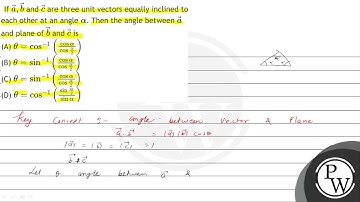 If $\vec{a}, \vec{b}$ and $\vec{c}$ are three unit vectors equally inclined to
each other at an angle α. Then the angle between $\vec{a}$
and plane of $\vec{b}$ and $\vec{c}$ is
(A) $\theta = \cos^{-1}\left(\frac{\cos \alpha}{\cos \frac{\alpha}{2}}\right)$
(B) $\theta = \sin^{-1}\left(\frac{\cos \alpha}{\cos \frac{\alpha}{2}}\right)$
(C) $\theta = \sin^{-1}\left(\frac{\cos \alpha}{\cos \frac{\alpha}{2}}\right)$
(D) $\theta = \cos^{-1}\left(\frac{\sin \frac{\alpha}{2}}{\sin \alpha}\right)$
Key Concept :- angle between Vector & Plane
$\vec{a} \cdot \vec{b}$ = |a| |b| cos θ
|a| = |b| = |c| = 1
$\vec{b}$ & $\vec{c}$
Let θ angle between $\vec{a}$ &
P
W